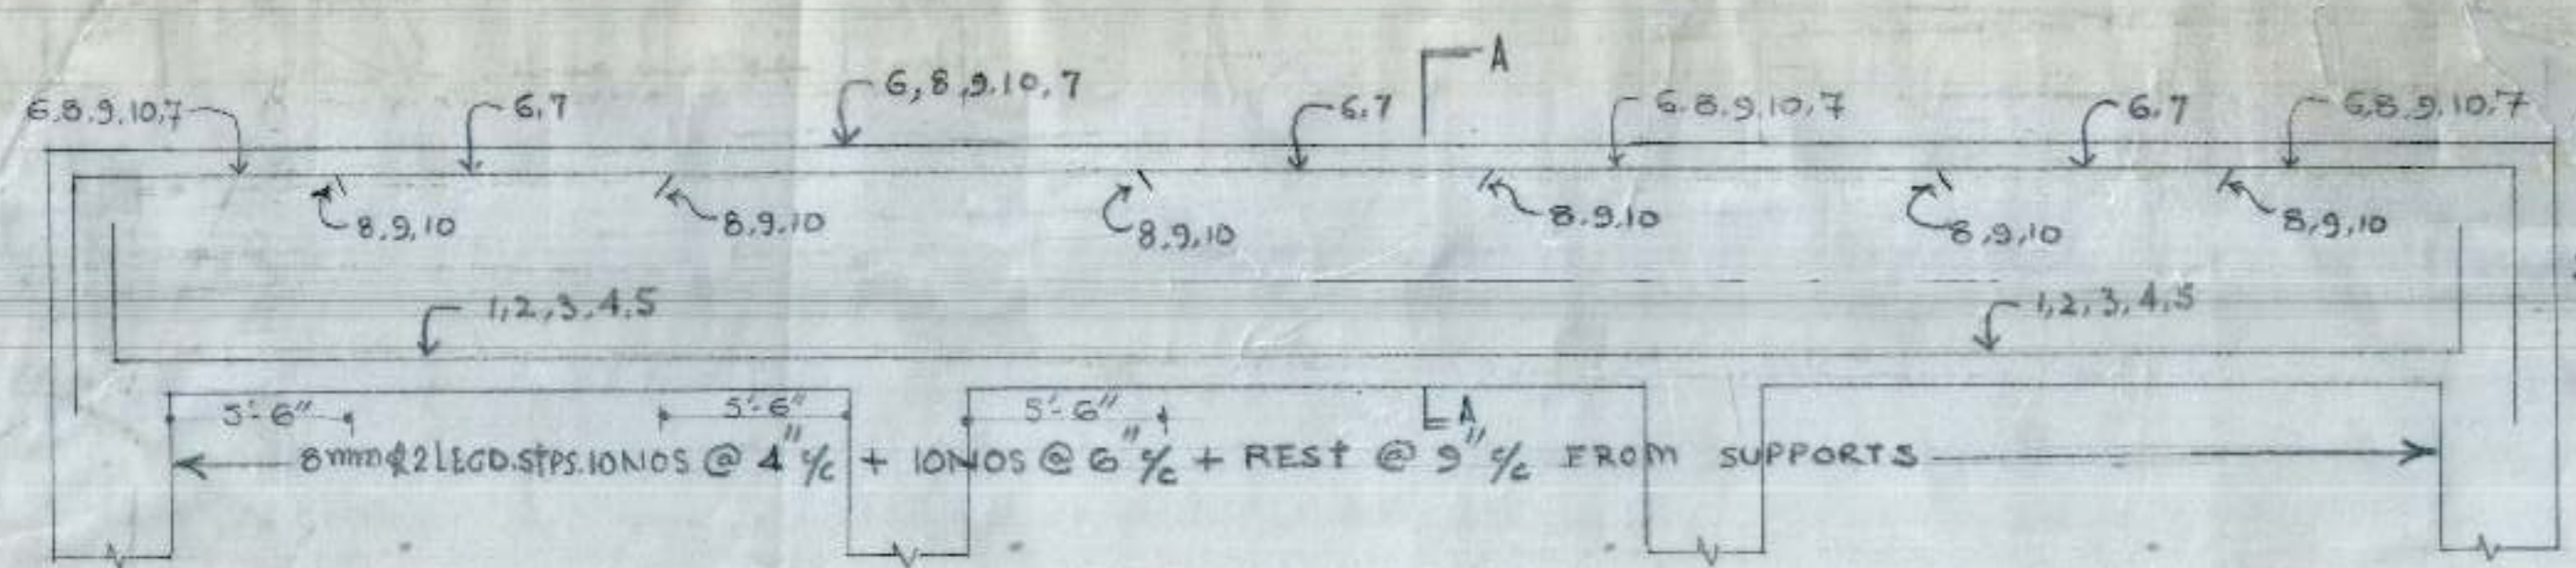 A
6,8,9,10,7
6,7
6,8,9,10,7
6,7
6,8,9,10,7
6,7
6,8,9,10,7
8,9,10
8,9,10
8,9,10
8,9,10
8,9,10
8,9,10
1,2,3,4,5
1,2,3,4,5
5'-6"
5'-6"
5'-6"
A
8mmφ2LEGD.STPS.10NOS @ 4" c/c + 10NOS @ 6" c/c + REST @ 9" c/c FROM SUPPORTS